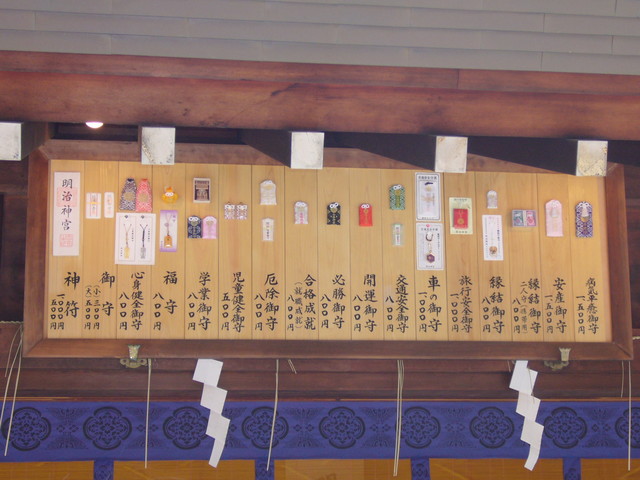 病気平癒御守
一、五〇〇円
安産御守
一、五〇〇円
縁結御守
二人分(携帯用)
縁結御守
八〇〇円
旅行安全御守
八〇〇円
車の御守
一、〇〇〇円
交通安全御守
八〇〇円
開運御守
八〇〇円
必勝御守
八〇〇円
合格成就
(就職成就)
八〇〇円
厄除御守
八〇〇円
児童健全御守
五〇〇円
学業御守
八〇〇円
福守
八〇〇円
心身健全御守
八〇〇円
御守
(小)三〇〇円
(大)五〇〇円
神符
一、〇〇〇円
一、五〇〇円
明治神宮